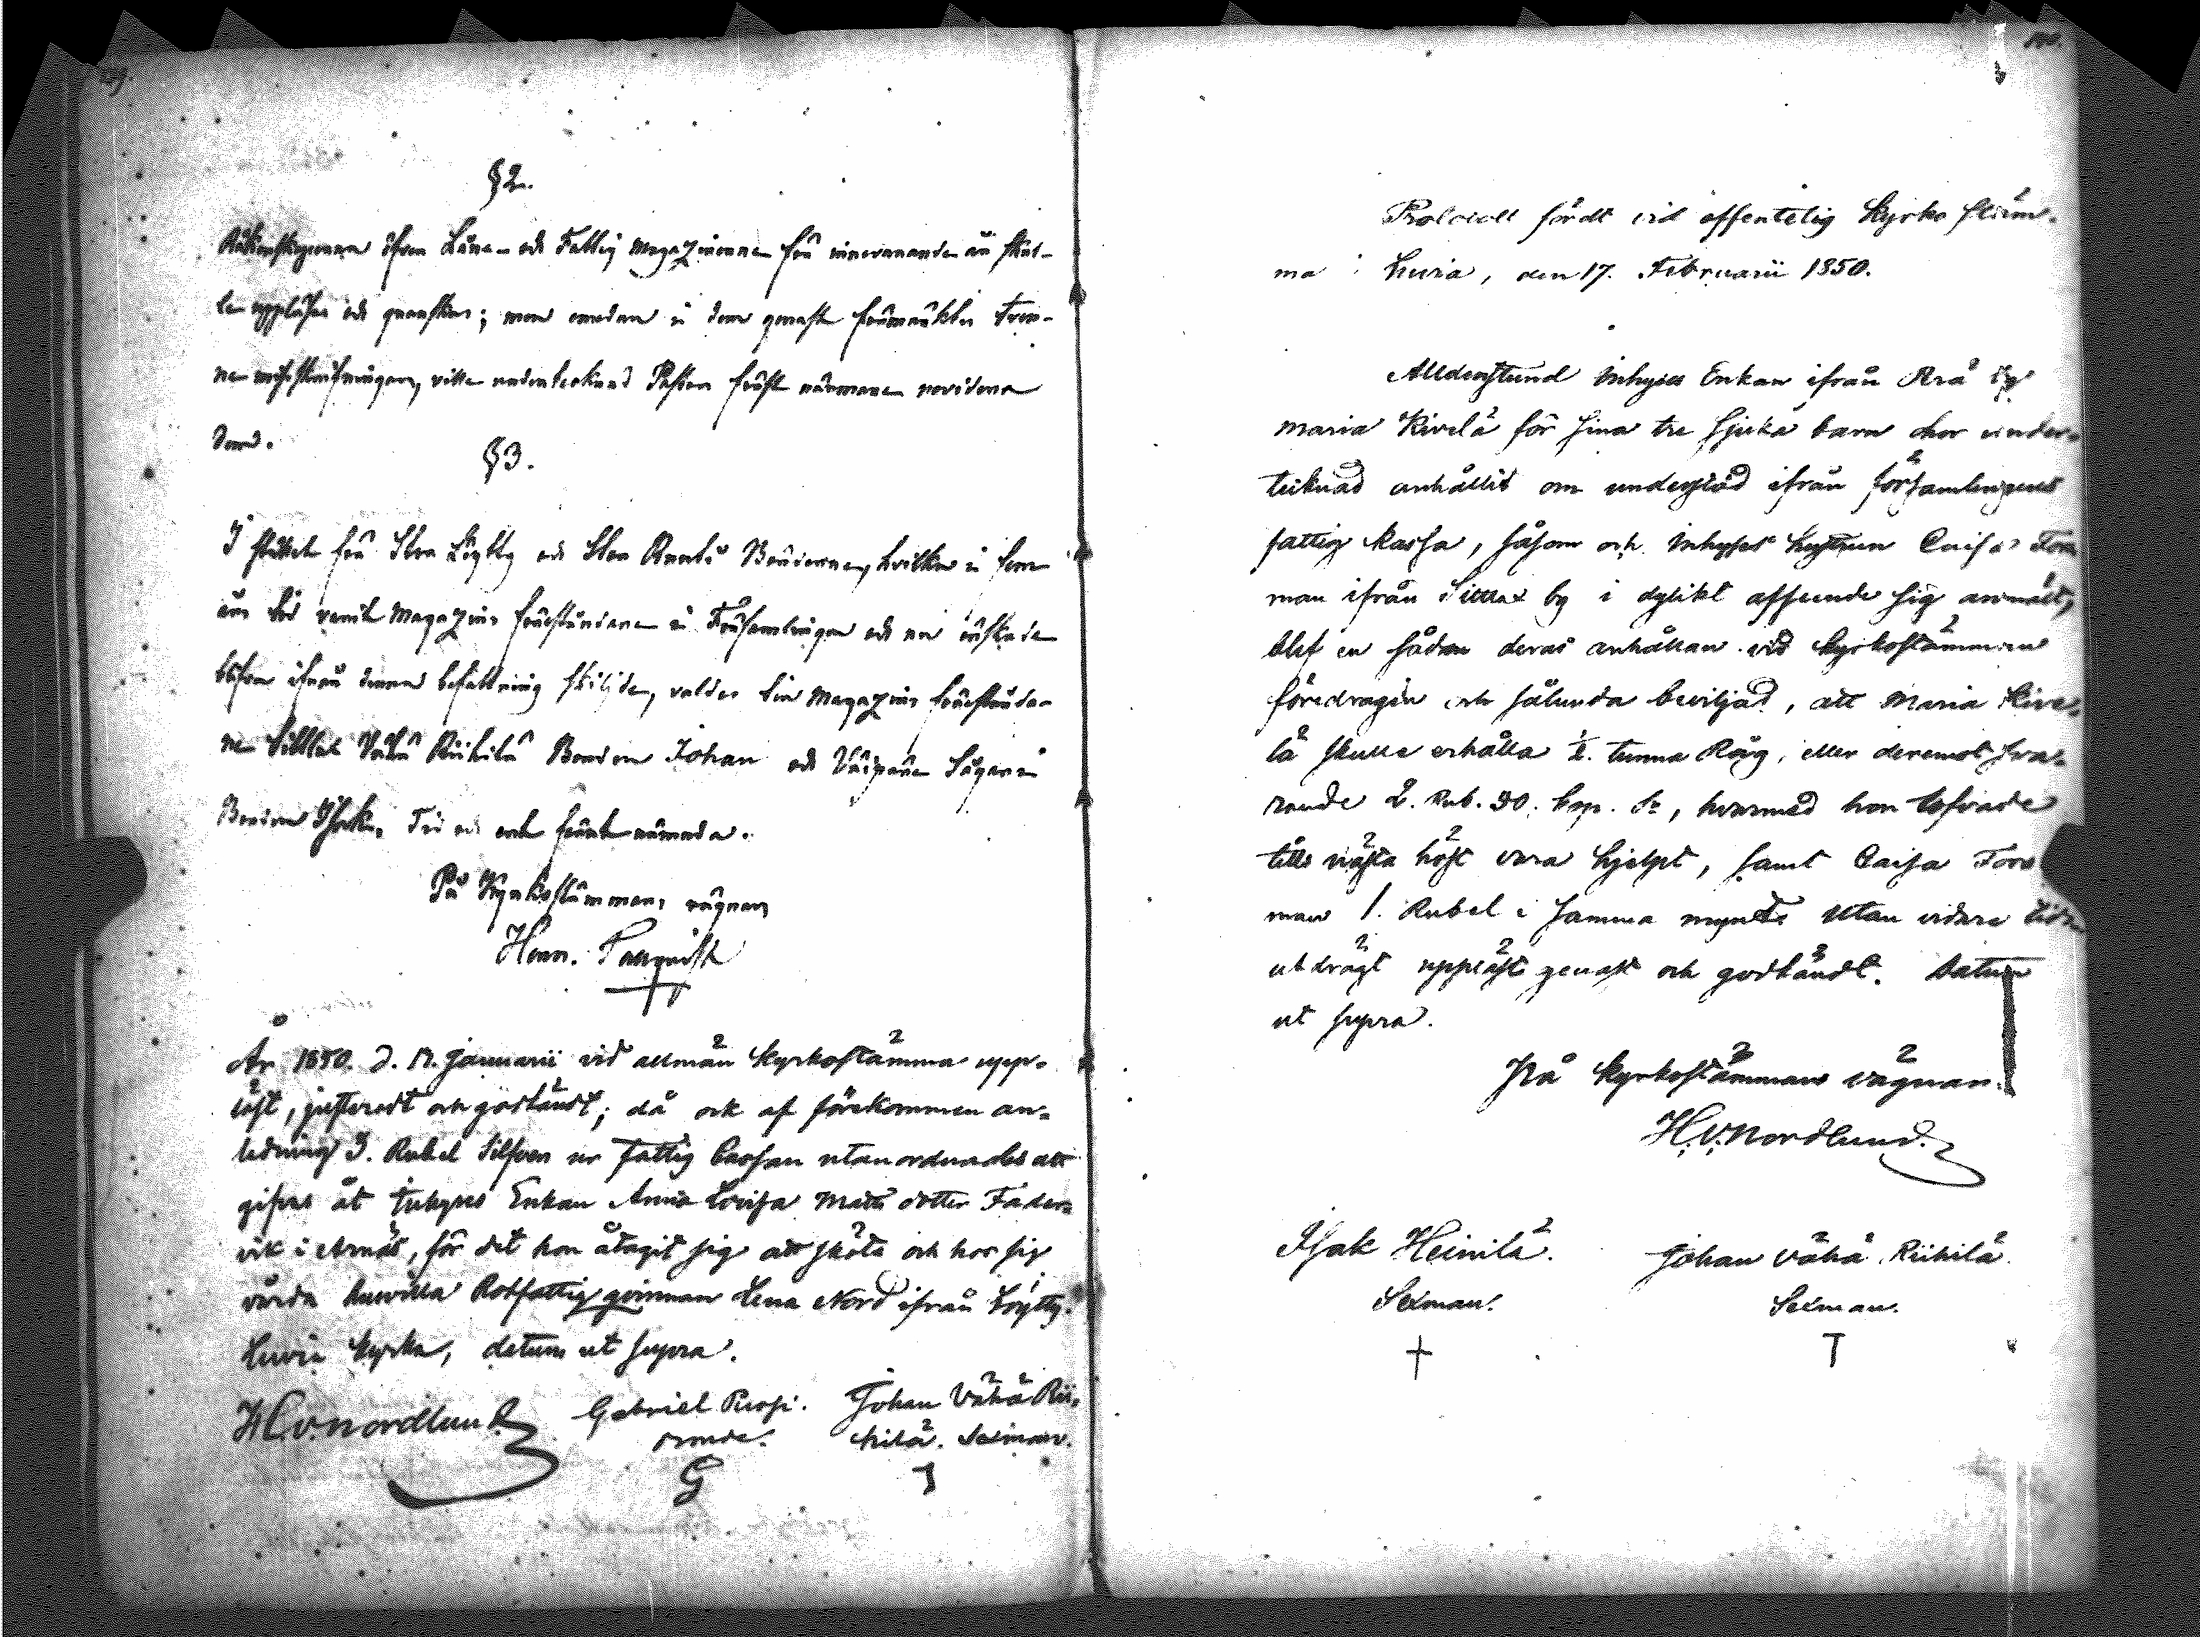 §2.
Räkenskaperna öfver Låne- och Fattig Magazinerne för innevarande år skul-
le uppläsas och granskas; men emedan i dem genast förmärktes tven-
ne misskrifningar, ville undertecknad Pastor först närmare revidera
dem.
§3.
I stället för Stor Löytty och Stor Anttis Bönderne, hvilka i fem
års tid varit Magazins föreståndare i Församlingen och nu önskade
blifva ifrån denna befattning skiljde, valdes till Magazins förestånda-
re tillika Vähä Riihilä Bonden Johan och Väipäre Sägari
Bonden Isak. Tid och ort förut nämnda.
På Kyrkostämmans vägnar
Henr. Tallqvist
År 1850. d. 17. Januarii vid allmän kyrkostämma upp-
läst, justeradt och godkändt; då ock af förekommen an-
ledning 3. Rubel Silfver ur fattig Cassan utanordnades att
gifvas åt Inhyses Enkan Anna Lovisa Matts dotter Fader-
vik i Arnäs, för det hon åtagit sig att sköta och hos sig
vårda husvilla Rotfattig qvinnan Lena Nord ifrån Löytty.
Luvia kyrka, datum ut supra.
H. v. Nordlund. Gabriel Prusi. Johan Vähä Rii-
bonde. hilä. Sexman.
G J
Protocoll fördt vid offentelig Kyrko stäm-
ma i Luvia, den 17. Februarii 1850.
Alldenstund Inhyses Enkan ifrån Perå by
Maria Kivelä för sina tre sjuka barn hos under-
tecknad anhållit om understöd ifrån församlingens
fattig kassa, såsom och Inhyses hustrun Caisa Fors
man ifrån Sitter by i dylikt afseende sig anmält,
blef en sådan deras anhållan vid kyrkostämman
föredragen och sålunda beviljad, att Maria Kive-
lä skulle erhålla ½. tunna Råg, eller deremot sva-
rande 2. Rub. 30. kop. Sr, hvarmed hon lofvade
tills nästa höst vara hjelpt, samt Caisa Fors
man 1. Rubel i samma mynt. Utan vidare tids
utdrägt uppläst genast och godkändt. Datum
ut supra.
På Kyrkostämmans vägnar.
H. v. Nordlund.
Isak Heinilä. Johan Vähä Riihilä.
Sexman. Sexman.